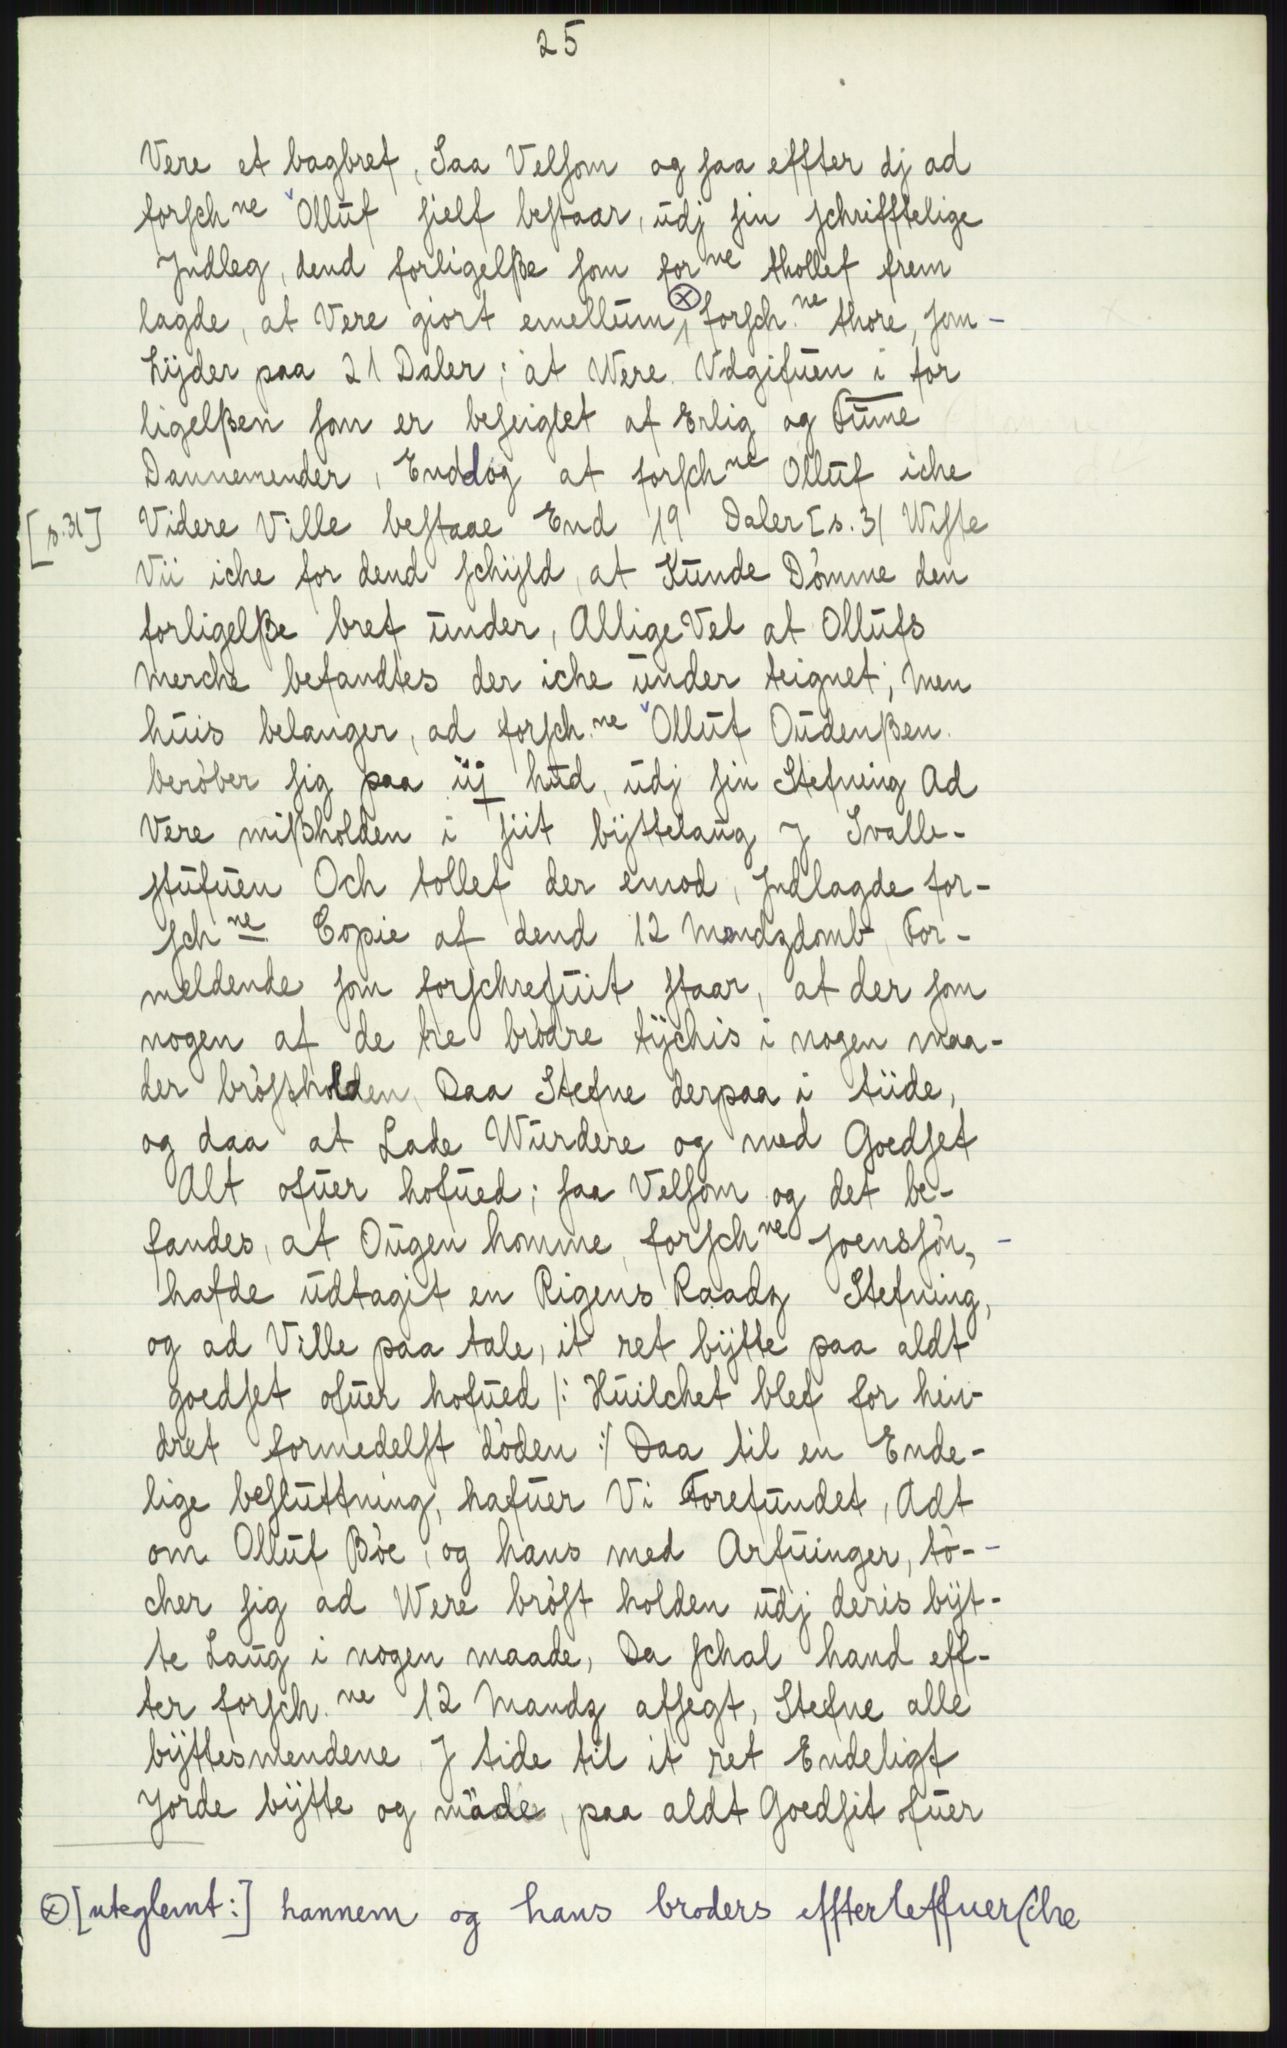 25
Vere et bagbref, Saa Velsom og saa effter dj ad
forschne Olluf sielf bestaar, udj sin schrifftelige
Indleg, dend forligelße som forne thollef frem
lagde, at Vere giort emellum, ⓧ forsch.ne thore, som-
Lyder paa 21 Daler; at Were Vdgifuen i for
ligelßen som er beseiglet af Erlig og Fume
Dannemender, Enddog at forschne Olluf iche
[s.31] Videre Ville bestaae End 19 Daler [s.31 Wiste
Vii iche for dend schyld, at Kunde Dömme den
forligelße bref under, Allige Vel at Ollufs
Merche befandtes der iche under teignet; Men
huis belanger, ad forsch.ne Olluf Oudenßen.
beröber sig paa iij hud, udj sin Stefning Ad
Vere mißholden i siit byttelaug J Svalle-
stufuen Och tollef der emod, Jndlagde for-
schne Copie af dend 12 Mandzdomb For-
meldende som forschrefuit staar, at der som
nogen af de tre brödre tychis i nogen maa-
der bröstholden, Daa Stefne derpaa i tiide,
og daa at Lade Wurdere og med Goedset
Alt ofuer hofued; saa Velsom og det be-
fandes, at Ougen homme, forschne Joenssön,-
hafde udtagit en Rigens Raadz Stefning,
og ad Ville paa tale, it ret bytte paa aldt
goedset ofuer hofued /: Huilchet blef for hin-
dret formedelst döden :/ Daa til en Ende-
lige besluttning, hafuer Vi Forefundet, Adt
om Olluf Böe, og hans med Arfuinger, tö--
cher sig ad Were bröst holden udj deris byt-
te Laug i nogen maade, Da schal hand eff-
ter forsch.ne 12 Mandz afsegt, Stefne alle
byttesmendene J tide til it ret Endeligt
Jorde bytte og måde, paa aldt Goedsit ofuer
ⓧ [uteglemt:] hannem og hans broders effterleffuersche